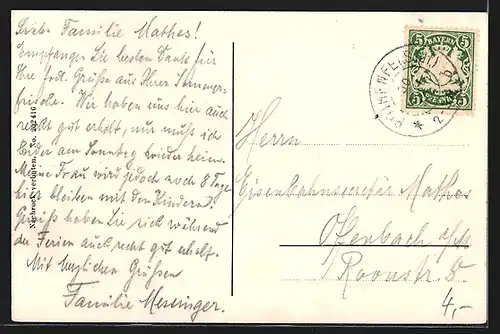 Liebe Familie Mathes!
Empfangen Sie besten Dank für
Ihre Grüße aus Ihrer Sommer-
frische. Wir haben uns hier auch
recht gut erholt, nur muß ich
leider am Sonntag wieder heim.
Meine Frau wird jedoch noch 8 Tage
hier bleiben mit den Kindern.
haben Sie sich während
der Ferien auch recht gut erholt.
Mit herzlichen Grüßen
Familie Messinger.
Nachdruck verboten. No. 202416
BAYERN
5 5
5 5
PFENNIG
Herrn
Eisenbahnsekretär Mathes
Offenbach a/M
Roonstr 8
4,-